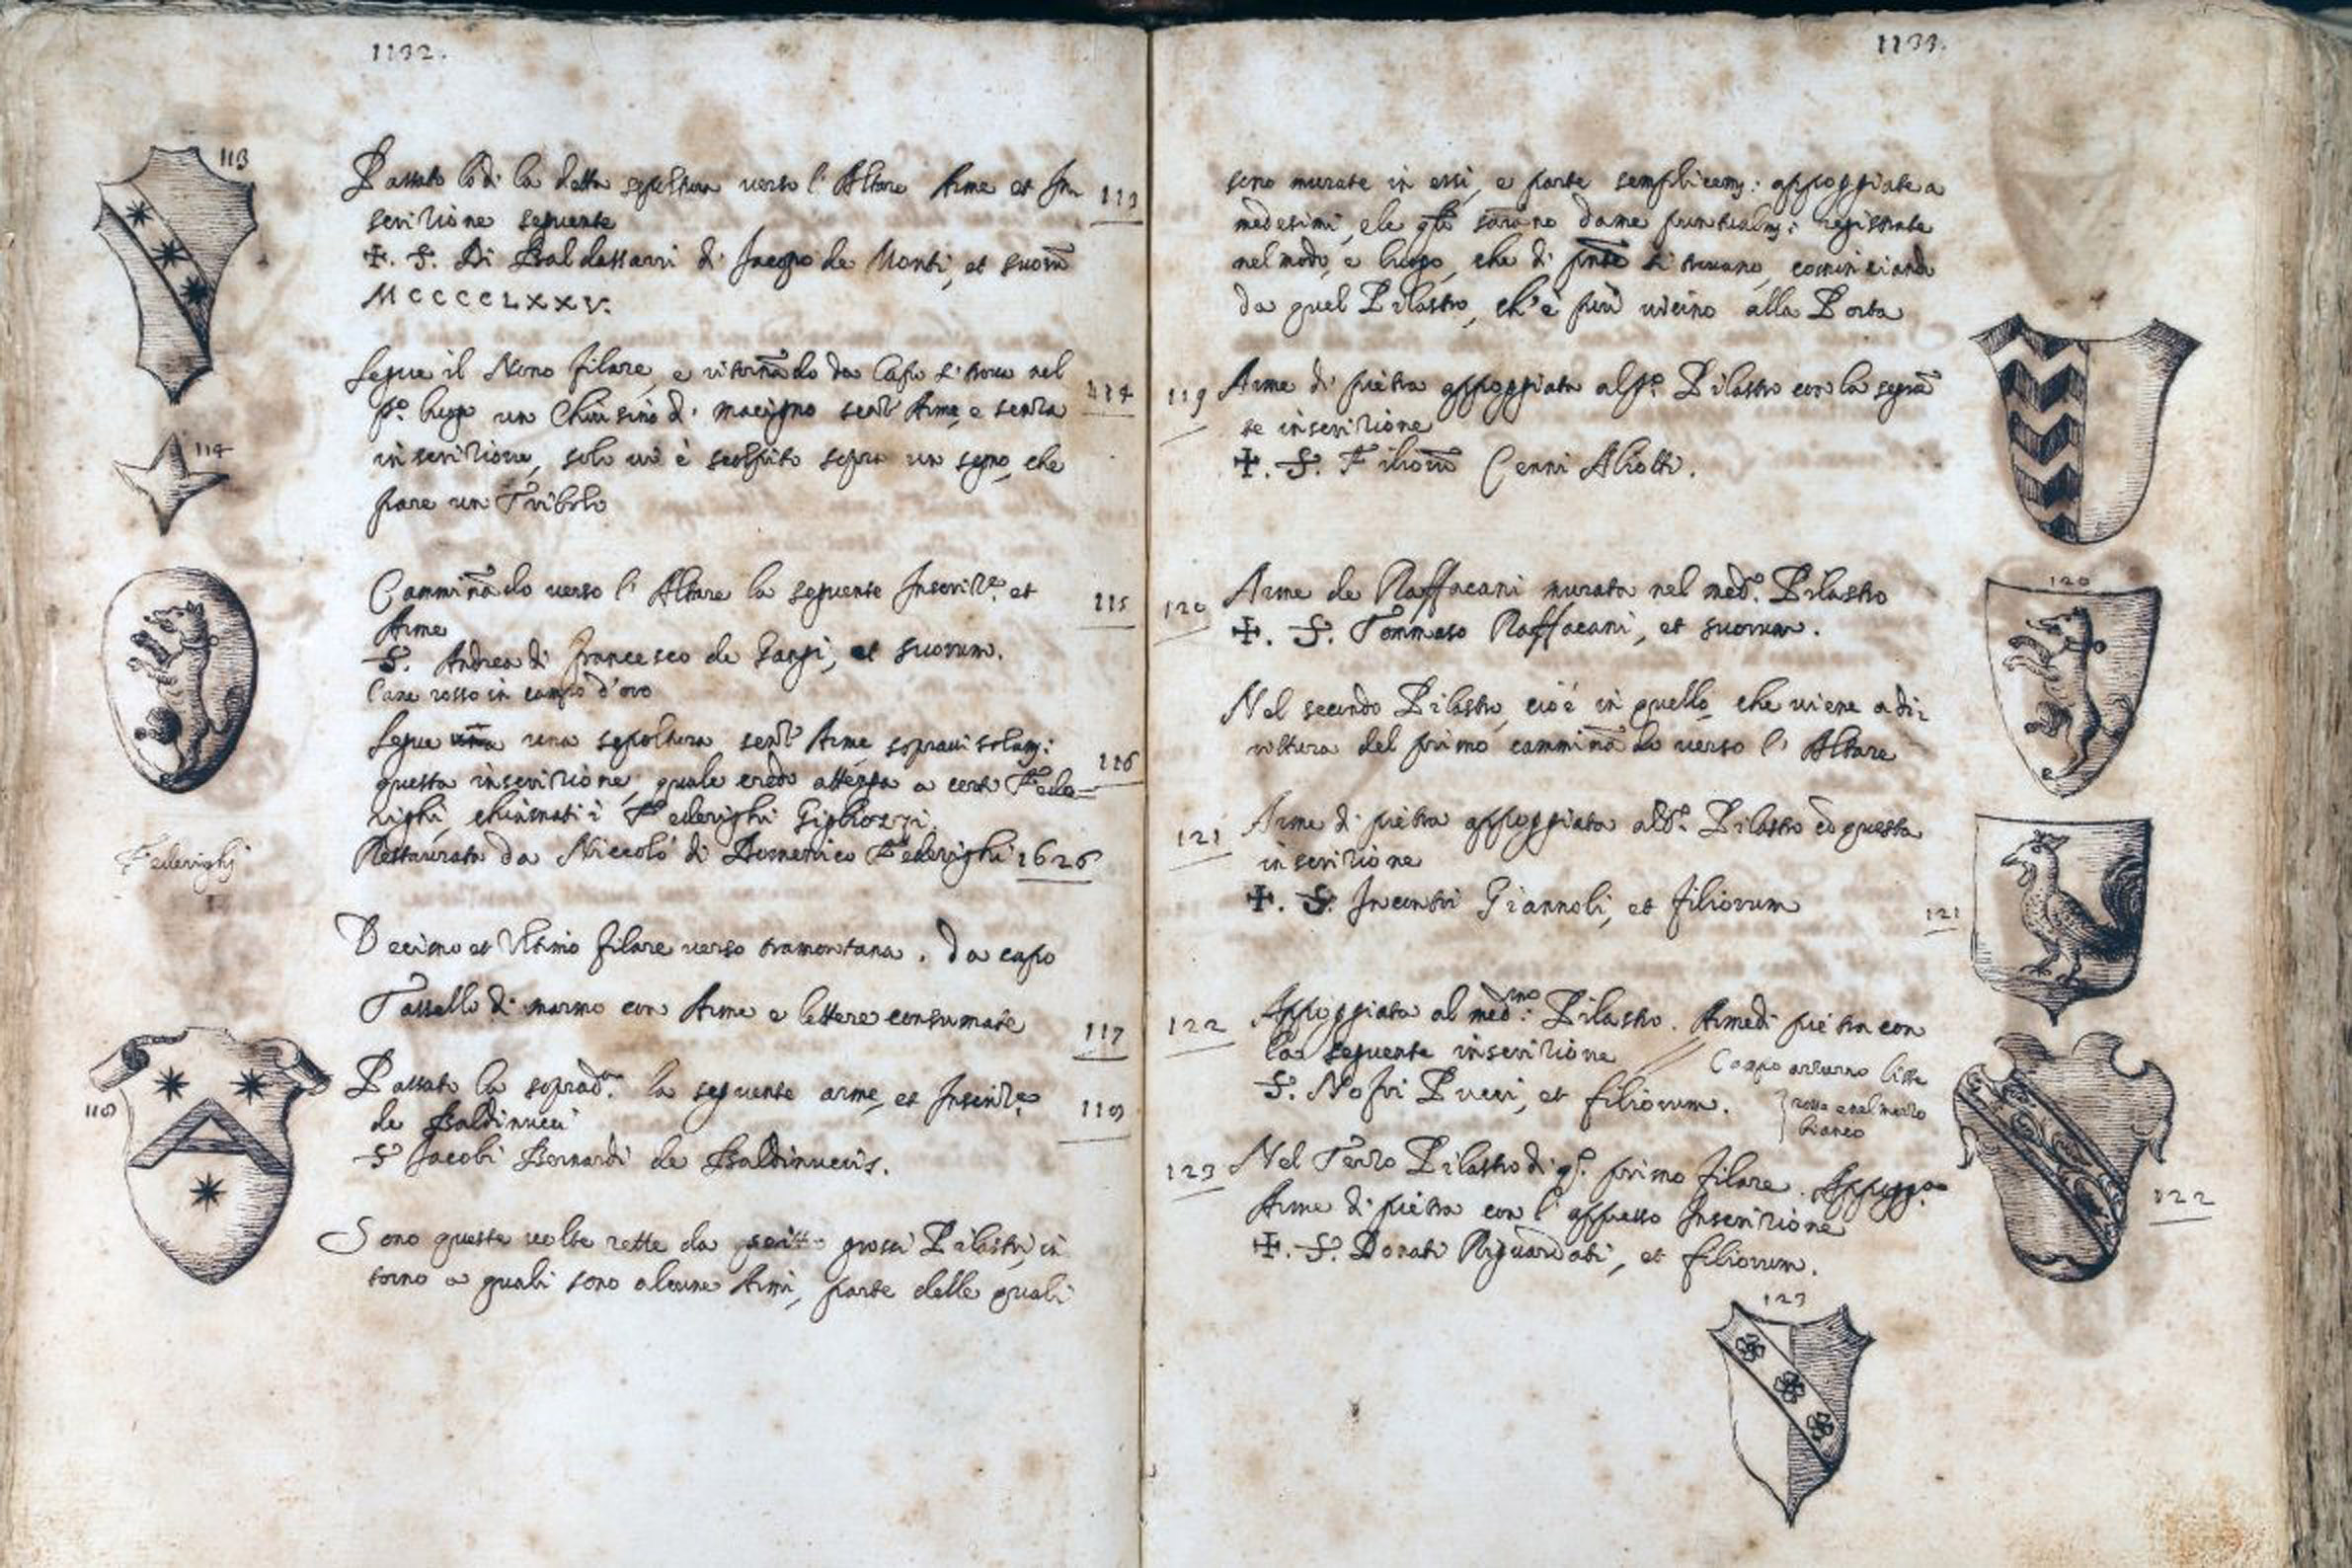 1132.
113
Passato lo di la detta sepoltura verso l'Altare Arme et In
scrizione seguente
113
✠. S. Di Baldassarri di Jacopo de Monti, et suorũ
MCCCCLXXV.
Segue il Nono filare, e ritornãdo da Capo si trova nel
p.º luogo un Chiusino di macigno senz' Arme, e senza
114
inscrizione, solo vi è scolpito sopra un segno, che
pare un Tribolo
114
Camminãdo verso l'Altare la seguente Inscriz.e et
Arme
115
S. Andrea di Francesco de Pansi, et suorum.
Cane rosso in campo d'oro
Segue una sepoltura senz' Arme, sopravi solam:
questa inscrizione, quale credo attenga a certi Fede=
116
righi, chiamati i Federighi Gigliozzi.
Restaurata da Niccolò di Domenico Federighi 1626
Federighi
Decimo et Ultimo filare verso tramontana. da capo
Tassello di marmo con Arme e lettere consumate
117
Passato la soprad.a la seguente arme, et Inscriz.e
de Baldinucci
118
S. Jacobi Bernardi de Baldinuccis.
118
Sono queste volte rette da grossi Pilastri, in
torno a quali sono alcune Armi, parte delle quali
1133.
sono murate in essi, e parte semplicem: appoggiate a
medesimi, e le q̃li sarãno da me puntualm: registrate
nel modo, e luogo, che di si trovano, cominciando
da quel Pilastro, ch'è più vicino alla Porta
119 Arme di pietra appoggiata al p.º Pilastro con la seguẽ
te inscrizione
✠. S. Filiorũ Cenni Aliotti.
120 Arme de Raffacani murata nel med.º Pilastro
✠. S. Tommaso Raffacani, et suorum.
120
Nel secondo Pilastro, cioè in quello, che viene a di
rittura del primo camminãdo verso l'Altare
121 Arme di pietra appoggiata al d.º Pilastro cõ questa
inscrizione
✠. S. Incontri Giannoli, et filiorum
121
122 Appoggiata al med.mo Pilastro. Arme di pietra con
la seguente inscrizione
Campo azzurro liste
rosse e nel mezzo
bianco
S. Nofri Pucci, et filiorum.
122
123 Nel Terzo Pilastro di q.º primo filare. Appogg.a
Arme di pietra con l'appresso Inscrizione
✠. S. Donati Riguardati, et filiorum.
123